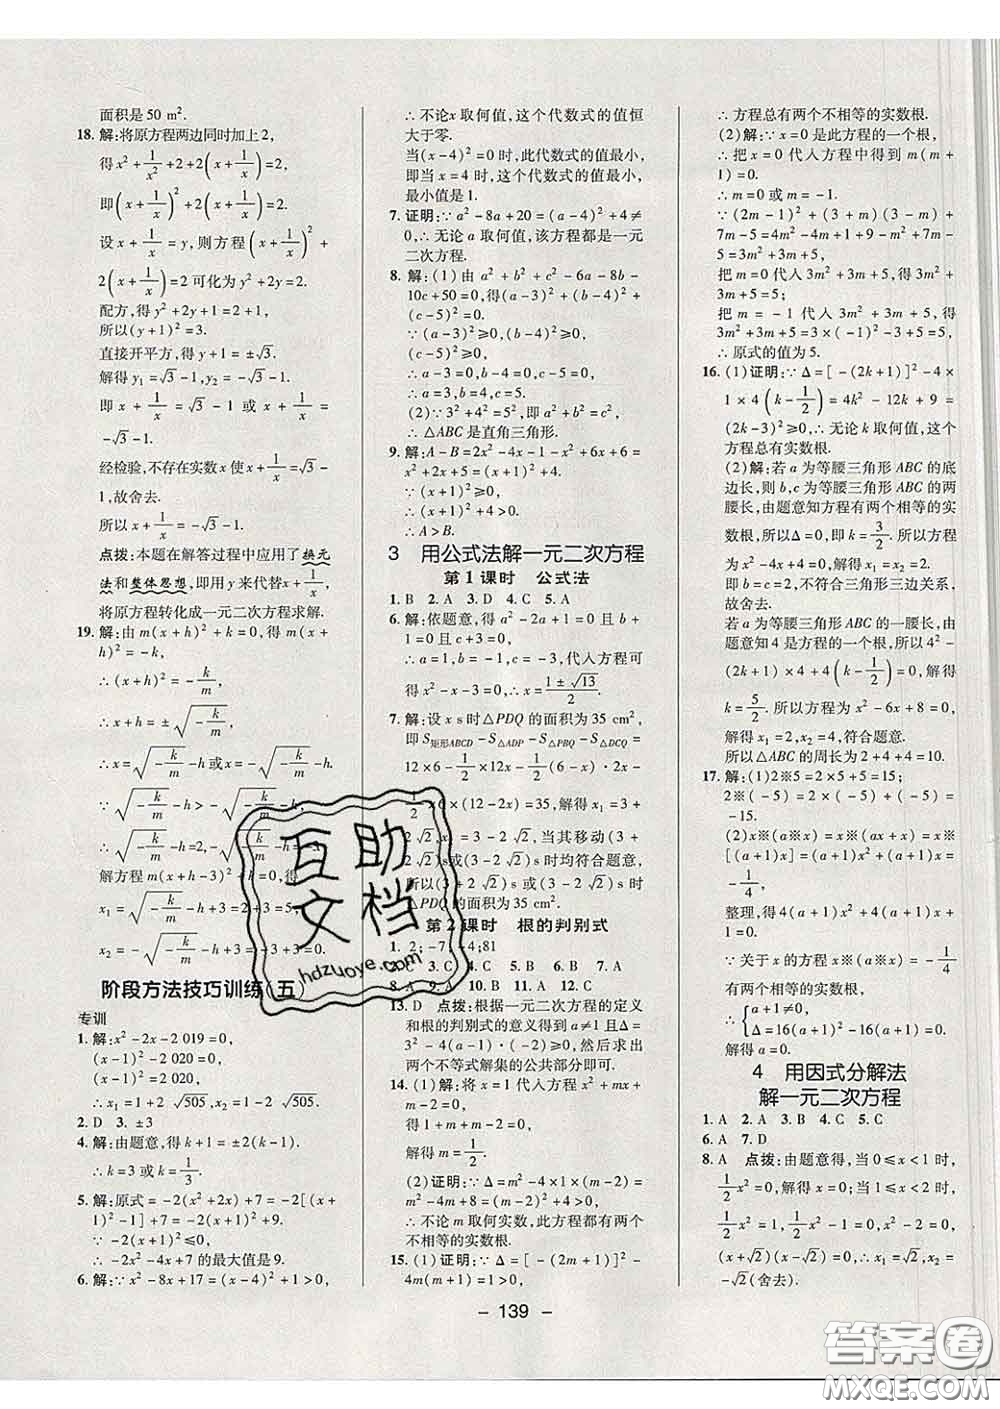 面积是50 m².
18. 解:将原方程两边同时加上2,
得x²+1/x²+2+2(x+1/x)=2.
即(x+1/x)²+2(x+1/x)=2.
设x+1/x=y,则方程(x+1/x)²+
2(x+1/x)=2可化为y²+2y=2.
配方,得y²+2y+1=2+1,
所以(y+1)²=3.
直接开平方,得y+1=±√3.
解得y₁=√3-1,y₂=-√3-1.
即x+1/x=√3-1或x+1/x=
-√3-1.
经检验,不存在实数x使x+1/x=√3-
1,故舍去.
所以x+1/x=-√3-1.
点拨:本题在解答过程中应用了换元
法和整体思想,即用y来代替x+1/x,
将原方程转化成一元二次方程求解.
19. 解:由m(x+h)²+k=0,得m(x+
h)²=-k,
∴(x+h)²=-k/m,
∴x+h=±√(-k/m),
∴x=√(-k/m)-h或x=-√(-k/m)-h.
∵√(-k/m)-h>-√(-k/m)-h,
∴√(-k/m)-h=2,-√(-k/m)-h=
解方程m(x+h-3)²+k=0,得
x₁=√(-k/m)-h+3=2+3=5,
x₂=-√(-k/m)-h+3=-3+3=0.
阶段方法技巧训练(五)
专训
1. 解:x²-2x-2 019=0,
(x-1)²-2 020=0,
(x-1)²=2 020,
∴x₁=1+2√505,x₂=1-2√505.
2. D 3. ±3
4. 解:由题意,得k+1=±2(k-1).
∴k=3或k=1/3.
5. 解:原式=-2(x²+2x)+7=-2[(x+
1)²-1]+7=-2(x+1)²+9.
∵-2(x+1)²≤0,
∴-2x²-4x+7的最大值是9.
6. 解:∵x²-8x+17=(x-4)²+1>0,
∴不论x取何值,这个代数式的值恒
大于零.
当(x-4)²=0时,此代数式的值最小,
即当x=4时,这个代数式的值最小,
最小值是1.
7. 证明:∵a²-8a+20=(a-4)²+4≠
0,∴无论a取何值,该方程都是一元
二次方程.
8. 解:(1)由a²+b²+c²-6a-8b-
10c+50=0,得(a-3)²+(b-4)²+
(c-5)²=0.
∵(a-3)²≥0,(b-4)²≥0,
(c-5)²≥0,
∴a-3=0,b-4=0,c-5=0,
∴a=3,b=4,c=5.
(2)∵3²+4²=5²,即a²+b²=c²,
∴△ABC是直角三角形.
9. 解:A-B=2x²-4x-1-x²+6x+6=
x²+2x+5=(x+1)²+4.
∵(x+1)²≥0,
∴(x+1)²+4>0.
∴A>B.
3 用公式法解一元二次方程
第1课时 公式法
1. B 2. A 3. D 4. C 5. A
6. 解:依题意,得a²-2a+1=0且b+
1=0,c+3=0,
∴a=1,b=-1,c=-3,代入方程可
得x²-x-3=0,∴x=(1±√13)/2.
7. 解:设x s时△PDQ的面积为35 cm²,
即S矩形ABCD-S△ADP-S△PBQ-S△DCQ=
12×6-1/2×12x-1/2(6-x)·2x-
×6×(12-2x)=35.解得x=3±
2√2,3+2√2>0,当其移动(3+
2√2)s或(3-2√2)s时均符合题意,
所以(3+2√2)s或(3-2√2)s时
△PDQ的面积为35 cm².
第2课时 根的判别式
1. 2;-7;-4;81
3. C 4. C 5. B 6. B 7. A
8. A 9. A 11. A 12. C
13. D 点拨:根据一元二次方程的定义
和根的判别式的意义得到a≠1且Δ=
3²-4(a-1)×(-2)≥0,然后求出
两个不等式解集的公共部分即可.
14. 解:(1)将x=1代入方程x²+mx+
m-2=0,
得1+m+m-2=0,
解得m=1/2.
(2)证明:∵Δ=m²-4×1×(m-2)=
m²-4m+8=(m-2)²+4>0,
∴不论m取何实数,此方程都有两个
不相等的实数根.
15. (1)证明:∵Δ=[-(2m+1)]²-
4m(m+1)=1>0,
∴方程总有两个不相等的实数根.
(2)解:∵x=0是此方程的一个根,
∴把x=0代入方程中得到m(m+
1)=0.
∴m=0或m=-1.
∵(2m-1)²+(3+m)(3-m)+
7m-5=4m²-4m+1+9-m²+
7m-5=3m²+3m+5,
把m=0代入3m²+3m+5,得3m²+
3m+5=5;
把m=-1代入3m²+3m+5,得
3m²+3m+5=3×(-1)²-3+5=5,
∴原式的值为5.
16. (1)证明:∵Δ=[-(2k+1)]²-4
×1×4(k-1/2)=4k²-12k+9=
(2k-3)²≥0,∴无论k取何值,这个
方程总有实数根.
(2)解:若a为等腰三角形ABC的底
边长,则b,c为等腰三角形ABC的两
腰长,根据题意知方程有两个相等的实
数根,所以(2k-3)²=0,所以k=3/2.
此时原方程为x²-4x+4=0,
解得x₁=x₂=2,所以b+c=2+2=4,
即b+c=a,不符合三角形三边关系,
所以此种情况不存在.
若a为等腰三角形ABC的一腰长,由
题意知4是方程的一个根,所以4²-
(2k+1)×4+4(k-1/2)=0,解得
k=5/2.故原方程为x²-6x+8=0,
解得x₁=2,x₂=4,符合题意.
所以△ABC的周长为2+4+4=10.
17. 解:(1)2※5=2×5+5=15;
2※(-5)=2×(-5)+(-5)=
-15.
(2)x※(a※x)=x※(ax+x)=x※
[(a+1)x]=(a+1)x²+(a+1)x=
-1/4,
整理,得4(a+1)x²+4(a+1)x+1=
0.
∵关于x的方程x※(a※x)=-1/4
有两个相等的实数根,
∴{a+1≠0,
Δ=16(a+1)²-16(a+1)=0,
解得a=0.
4 用因式分解法
解一元二次方程
1. A 2. A 3. B 4. C 5. C
6. A 7. D
8. A 点拨:由题意得,当0≤x<1时,
1/2x²=0,解得x=0;当1≤x<2时,
1/2x²=1,∴1/2(x²-2)=0,
(x+√2)(x-√2)=0,∴x₁=√2,x₂=
-√2(舍去).
- 139 -
互助
文档
hdzuoye.com
答案圈
MXQE.COM